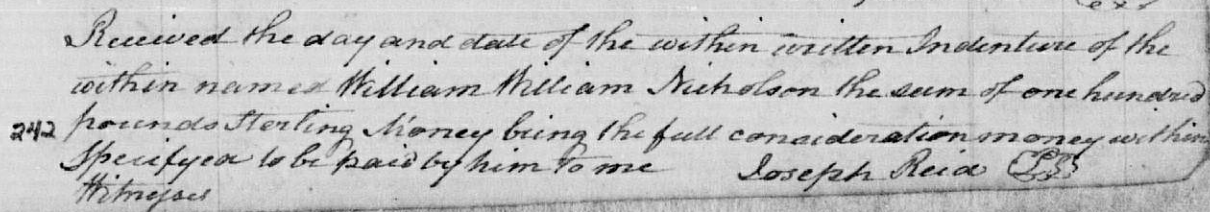 Received the day and date of the within written Indenture of the
within named William William Nicholson the sum of one hundred
242 pounds Sterling Money being the full consideration money within
Specifyed to be paid by him to me Joseph Reid LS
Witnesses